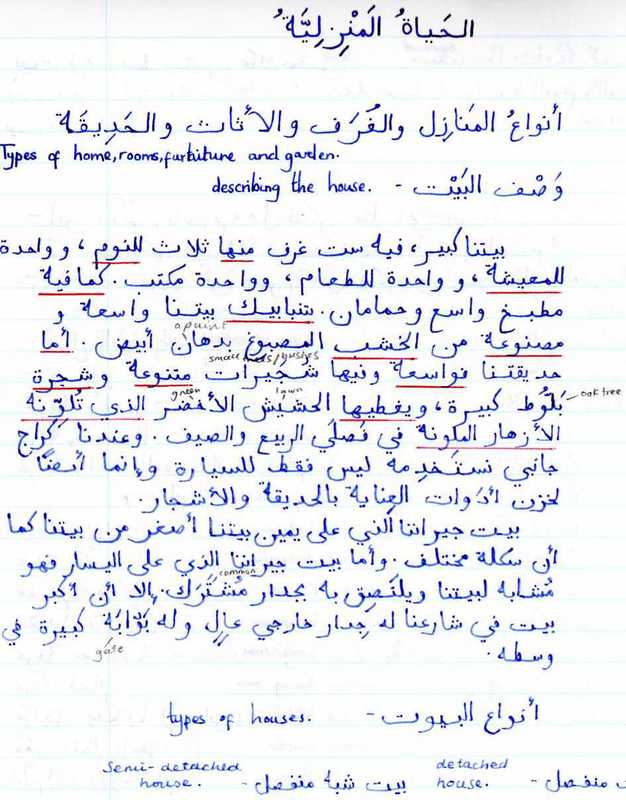 الحَياةُ المَنْزِلِيَّةُ
أنواعُ المَنازِل والغُرَف والأثاث والحَدِيقَة
Types of home, rooms, furbiture and garden.
وَصْف البَيْت - describing the house.
بيتنا كبير، فيه ست غرف منها ثلاث للنوم، وواحدة
للمعيشة، وواحدة للطعام، وواحدة مكتب. كما فية
مطبخ واسع وحمامان. شبابيك بيتنا واسعة و
a paint
مصنوعة من الخشب المصبوغ بدهان أبيض. أما
small trees/bushes
حديقتنا فواسعة وفيها شجيرات متنوعة وشجرة
green lawn
بَلّوُط كبيرة، ويغطيها الحشيش الأخضر الذي تُلوّنة oak tree
الأزهار المكونة في فصلي الربيع والصيف. وعندنا كراج
جانبي نستَخدِمه ليس فقط للسيارة وإنما أيضًا
لخزن أدَوات العِناية بالحديقة والأشجار.
بيت جيراننا الذي على يمين بيتنا أصغر من بيتنا كما
أن سكلة مختلف. وأما بيت جيراننا الذي على اليسار فهو
common
مُشابه لبيتنا ويلتَصِق به بجدار مُشتَرَك. إلا أن أكبر
بيت في شارعنا له جِدار خارجي عالٍ وله بَوّابَة كبيرة في
gate
وسطه.
أنواع البيوت - types of houses.
ت منفصل - detached house. بيت شبة منفصل - Semi-detached house.